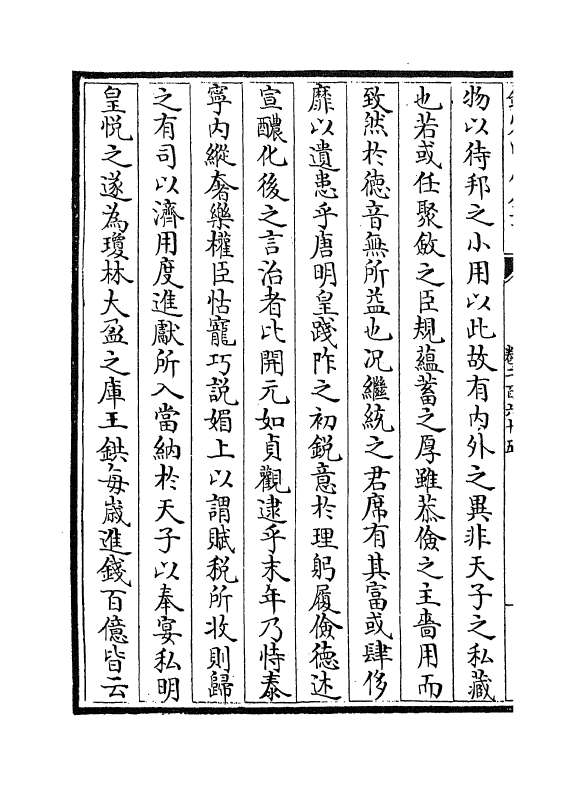 物以待邦之小用以此故有内外之異非天子之私藏
也若或任聚斂之臣規藴蓄之厚雖恭儉之主嗇用而
致然於徳音無所益也況繼統之君席有其富或肆侈
靡以遺患乎唐明皇踐阼之初鋭意於理躬履儉徳述
宣醲化後之言治者比開元如貞觀逮乎末年乃恃泰
寧内縱奢樂權臣怙寵巧説媚上以謂賦税所收則歸
之有司以濟用度進獻所入當納於天子以奉宴私明
皇悦之遂為瓊林大盈之庫王鉷每歳進錢百億皆云